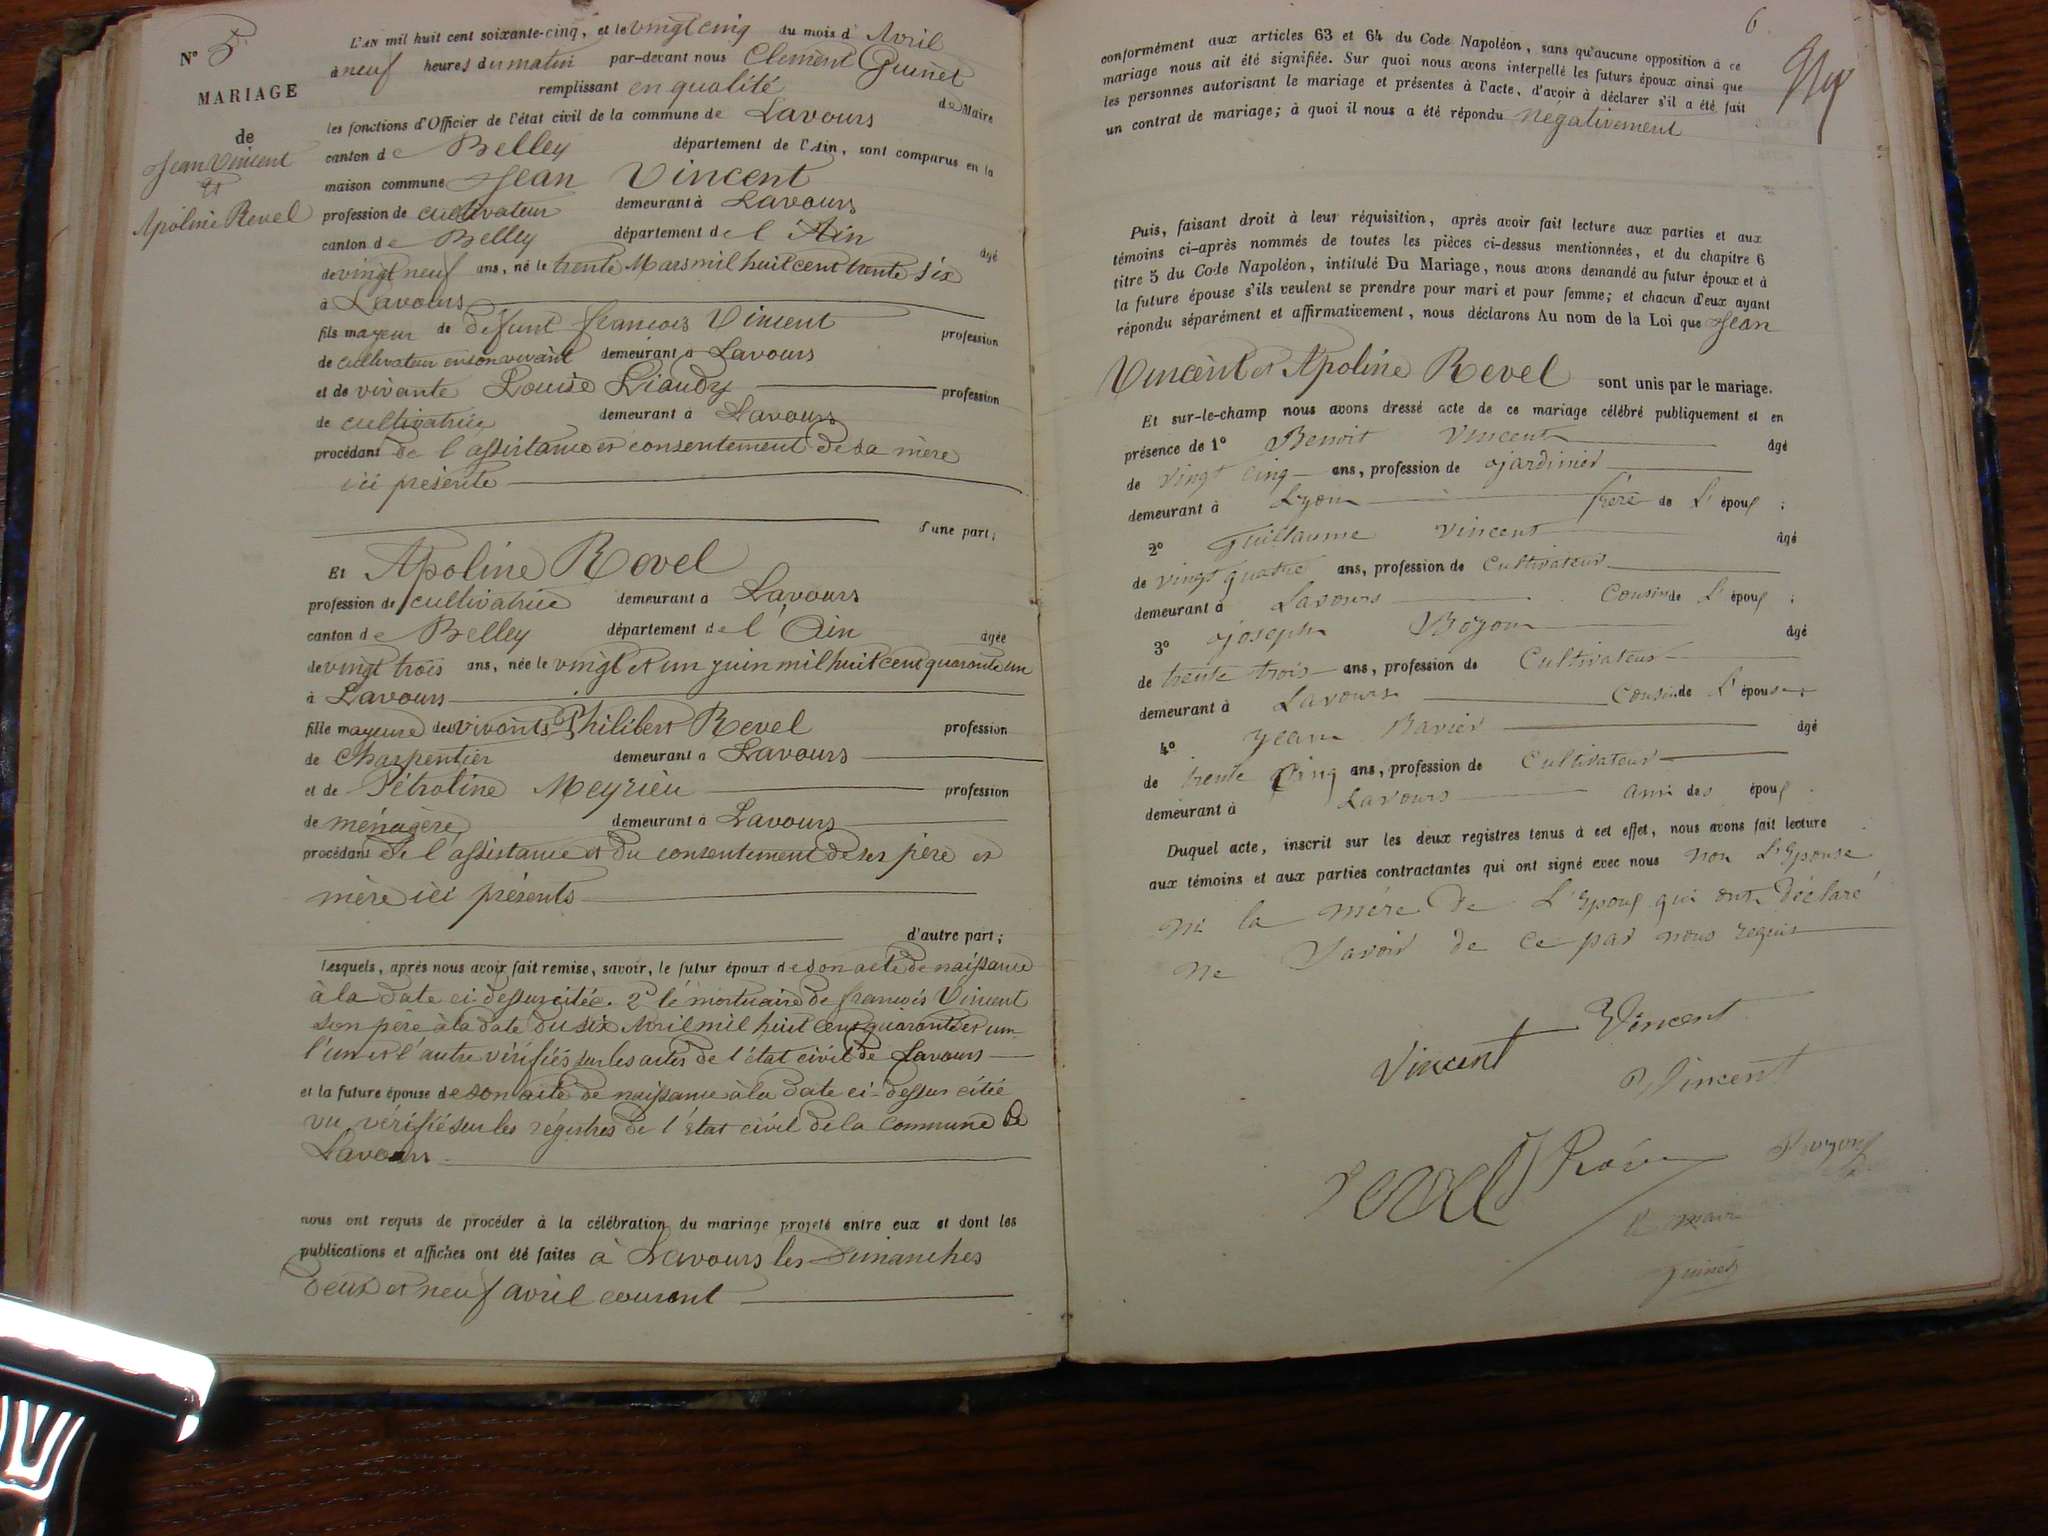 N° 5
MARIAGE
de
Jean Vincent
et
Apoline Revel
L'AN mil huit cent soixante-cinq, et le vingt cinq du mois d' Avril
à neuf heures du matin par-devant nous Clement Guinet
remplissant en qualité de Maire
les fonctions d'Officier de l'état civil de la commune de Lavours
canton de Belley département de l'Ain, sont comparus en la
maison commune Jean Vincent
profession de cultivateur demeurant à Lavours
canton de Belley département de l'Ain âgé
de vingt neuf ans, né le trente Mars mil huit cent trente six
à Lavours
fils mayeur de défunt francois Vincent profession
de cultivateur en son vivant demeurant à Lavours
et de vivante Louise Liaudy profession
de cultivatrice demeurant à Lavours
procédant de l'assistance et consentement de sa mère
ici présente
d'une part;
Et Apoline Revel
profession de cultivatrice demeurant à Lavours
canton de Belley département de l'Ain agée
de vingt trois ans, née le vingt et un juin mil huit cent quarante un
à Lavours
fille mayeure des vivants Philibert Revel profession
de Charpentier demeurant à Lavours
et de Pétroline Meyrieu profession
de ménagère demeurant à Lavours
procédant de l'assistance et du consentement de ses père et
mère ici présents
d'autre part;
Lesquels, après nous avoir fait remise, savoir, le futur époux de son acte de naissance
à la date ci-dessus citée. 2° le mortuaire de francois Vincent
son père à la date du six Avril mil huit cent quarante et un
l'un et l'autre vérifiés sur les actes de l'état civil de Lavours
et la future épouse de son acte de naissance à la date ci-dessus citée
vu vérifié sur les régistres de l'état civil de la commune de
Lavours
nous ont requis de procéder à la célébration du mariage projeté entre eux et dont les
publications et affiches ont été faites à Lavours les Dimanches
deux et neuf avril courant
6
conformément aux articles 63 et 64 du Code Napoléon, sans qu'aucune opposition à ce
mariage nous ait été signifiée. Sur quoi nous avons interpellé les futurs époux ainsi que
les personnes autorisant le mariage et présentes à l'acte, d'avoir à déclarer s'il a été fait
un contrat de mariage; à quoi il nous a été répondu Négativement
Puis, faisant droit à leur réquisition, après avoir fait lecture aux parties et aux
témoins ci-après nommés de toutes les pièces ci-dessus mentionnées, et du chapitre 6
titre 5 du Code Napoléon, intitulé Du Mariage, nous avons demandé au futur époux et à
la future épouse s'ils veulent se prendre pour mari et pour femme; et chacun d'eux ayant
répondu séparément et affirmativement, nous déclarons Au nom de la Loi que Jean
Vincent et Apoline Revel sont unis par le mariage.
Et sur-le-champ nous avons dressé acte de ce mariage célébré publiquement et en
présence de 1° Benoit Vincent âgé
de vingt cinq ans, profession de jardinier
demeurant à Lyon frère de L' époux ;
2° Guillaume Vincent âgé
de vingt quatre ans, profession de Cultivateur
demeurant à Lavours Cousin de L' époux ;
3° joseph Bozon âgé
de trente trois ans, profession de Cultivateur
demeurant à Lavours Cousin de L' épouse
4° Jean Ravier âgé
de trente Cinq ans, profession de Cultivateur
demeurant à Lavours ami des époux
Duquel acte, inscrit sur les deux registres tenus à cet effet, nous avons fait lecture
aux témoins et aux parties contractantes qui ont signé avec nous non L'Epouse
ni la mère de L'Epoux qui ont déclaré
ne Savoir de ce par nous requis
Vincent Vincent
Vincent
revel
le maire
guinet